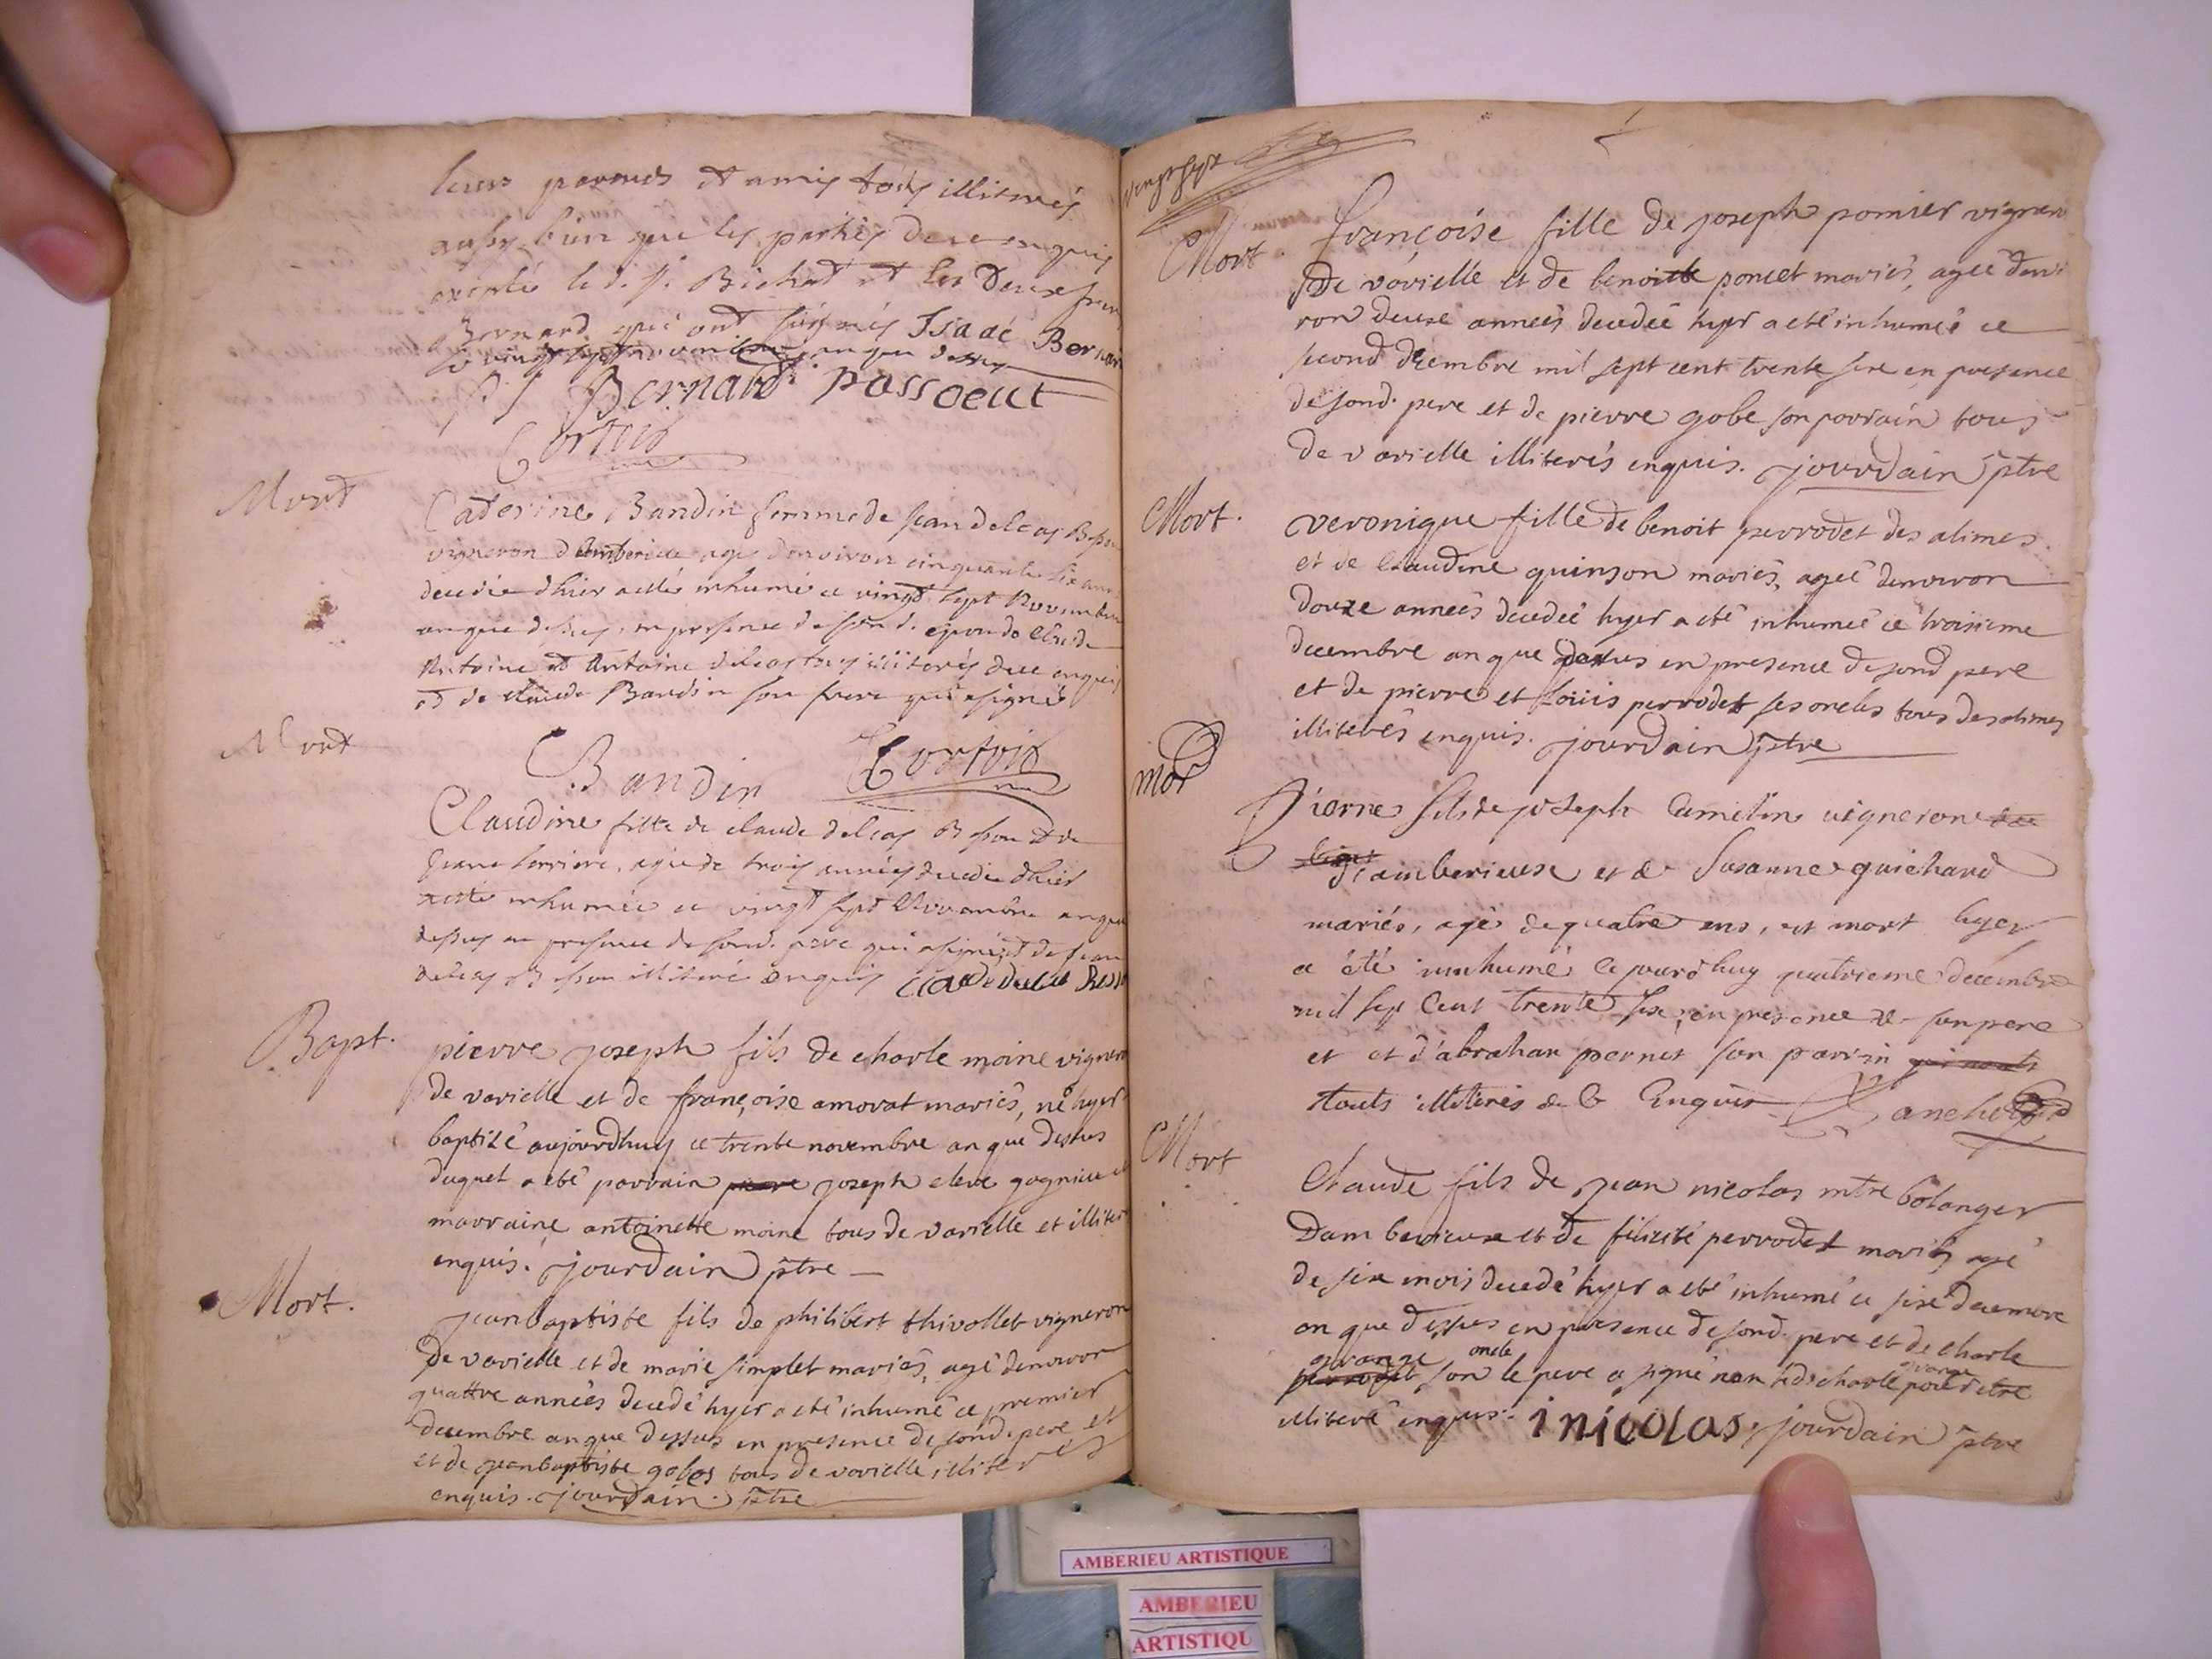 leurs parents et amis tous illiterés
aussy bien que les parties de ce enquis
excepté le d. Sr. Bichat et les deux freres
Bernard qui ont signés Isaac Bernard
ce vingt sept novembre an que dessus
P J Bernard passerut
Cortois
Mort
Caterine Bandin femme de Jean delcas Besson
vigneron d'Amberieux agée d'environ cinquante six ans
decedée dhier a esté inhumée ce vingt sept Novembre
an que dessus, en presence de son d. epoux de Claude
Antoine et Antoine delcas tous illiterés de ce enquis
et de claude Bandin son frere qui a signé
Bandin Cortois
Mort
Claudine fille de claude delcas Besson et de
agée de trois années decedée dhier
a esté inhumée ce vingt sept Novembre an que
dessus en presence de son d. pere qui a signé et de Jean
delcas Besson illiteré enquis
Bapt.
pierre joseph fils de charle moine vigneron
de varielle et de françoise amorat mariés, né hyer
baptizé aujourdhuy ce trente novembre an que dessus
duquel a eté parrain joseph cleve gagnieur et
marraine antoinette moine tous de varielle et illiterés
enquis. jourdain ptre
Mort.
jean baptiste fils de philibert thivollet vigneron
de varielle et de marie simplet mariés, agé denviron
quattre années decedé hyer a eté inhumé ce premier
decembre an que dessus en presence de sond. pere et
et de jean baptiste gobet tous de varielle illiterés
enquis. jourdain. ptre
vingt sept
Mort.
françoise fille de joseph pomier vigneron
de varielle et de benoitte poncet mariés, agée denvi
ron deux années decedée hyer a eté inhumée ce
second decembre mil sept cent trente six en presence
de sond. pere et de pierre gobe son parrain tous
de varielle illiterés enquis. jourdain ptre
Mort.
veronique fille de benoit perrodet des alimes
et de claudine quinson mariés, agée denviron
douze années decedée hyer a eté inhumée ce troisieme
decembre an que dessus en presence de sond pere
et de pierre et Loüis perrodet ses oncles tous des alimes
illiterés enquis. jourdain ptre
mort
Pierre fils de joseph Camelin vigneron
d'amberieux et de Susanne guichard
mariés, agé de quatre ans, est mort hyer
a été innhumé ce jourdhuy quatrieme decembre
mil sept Cent trente Six, en presence de son pere
et et d'abraham pernet son parrin
touts illiterés de ce Enquis Sanchet
Mort
Claude fils de jean nicolas mtre bolanger
Damberieux et de felicité perrodet mariés agé
de six mois decedé hyer a eté inhumé ce six decembre
an que dessus en presence de sond. pere et de charle
grange oncle
perrodet son le pere a signé non led. charle grange pour etre
illiteré enquis. i nicolas, jourdain ptre
AMBERIEU ARTISTIQUE
AMBERIEU
ARTISTIQU